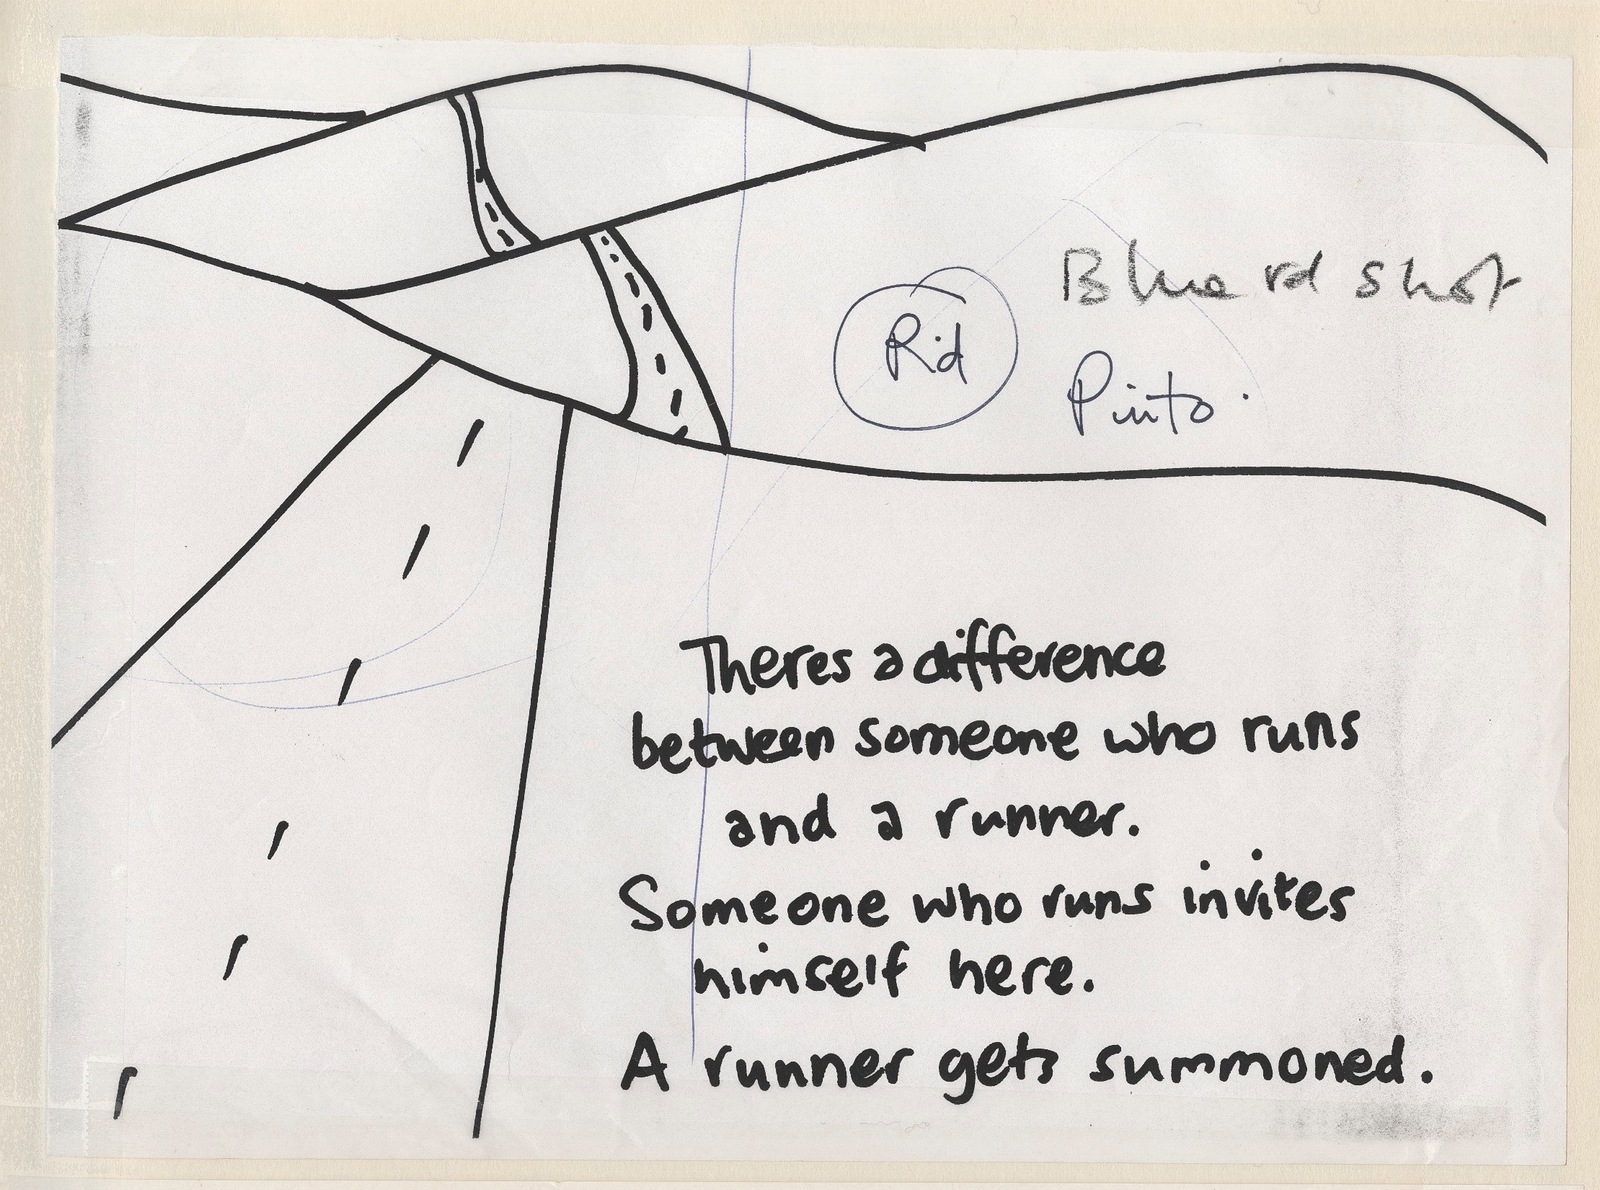 Blue rd shot
Rd
Pinto.
Theres a difference
between someone who runs
and a runner.
Someone who runs invites
himself here.
A runner gets summoned.